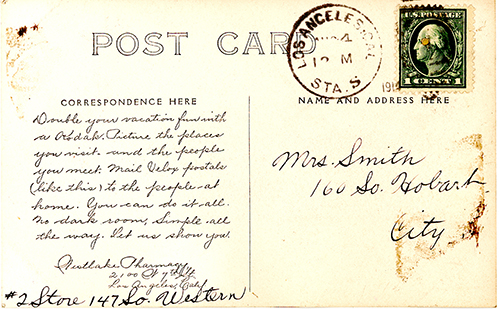 POST CARD
LOS ANGELES, CAL.
4
12 M
STA. S
191
U.S. POSTAGE
1 CENT 1
CORRESPONDENCE HERE
NAME AND ADDRESS HERE
Double your vacation fun with
a Kodak. Picture the places
you visit and the people
you meet. Mail Velox postals
(like this) to the people at
home. You can do it all.
No dark room, Simple all
the way. Let us show you.
Westlake Pharmacy
2100 W 7th St
Los Angeles, Calif
#2 Store 147 So. Western
Mrs. Smith
160 So. Hobart
City